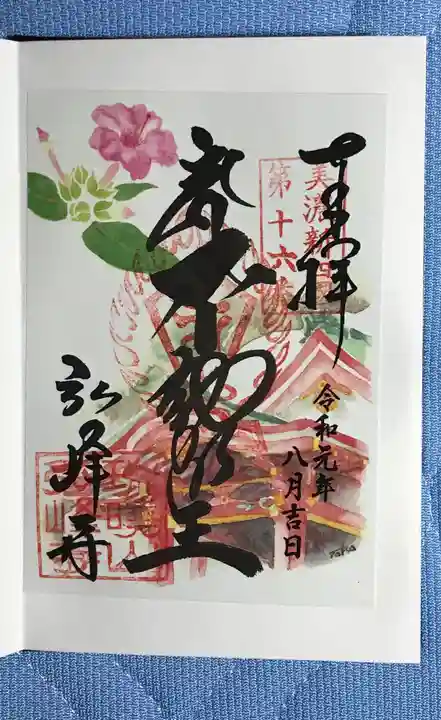 奉拝
美濃新四
第十六
令和元年
八月吉日
不動明王
弘峰寺